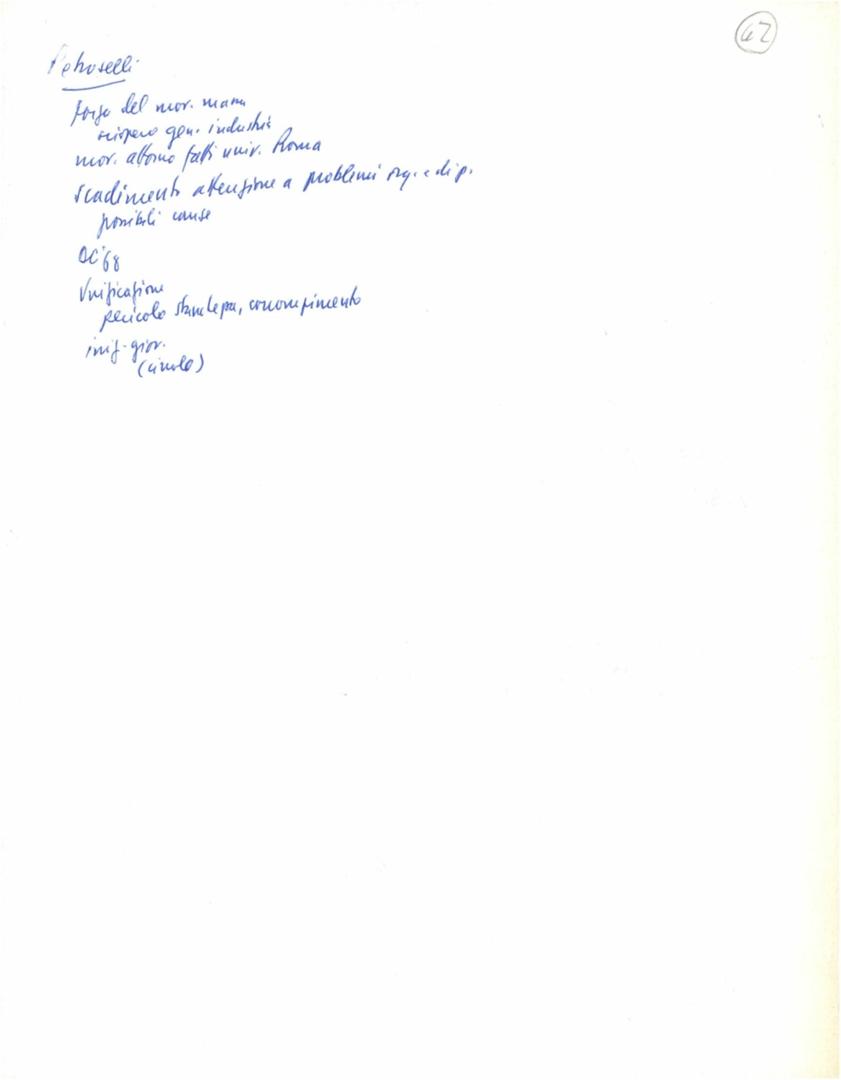 42
Petroselli
forza del mov. mani
sciopero gen. industria
mov. attorno fatti univ. Roma
scadimento attenzione a problemi org. e di p.
possibili cause
DC '68
Unificazione
pericolo stanchezza,
iniz. giov.
(circolo)